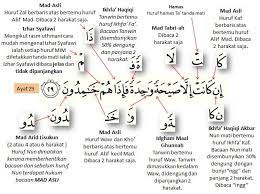 Mad Asli
Huruf Zal berbaris atas bertemu huruf
Alif Mad. Dibaca 2 harakat saja.
Izhar Syafawi
mudah mengenal Izhar Syafawi
ialah setiap huruf MIM
diletakkan tanda mati ialah
Izhar Syafawi dibaca jelas dan
tidak dipanjangkan
Ikhfa' Haqiqi
Tanwin bertemu
huruf Fa'.
Tanwin
disembunyikan
50% dengung
dan panjang 2
harakat.
Hamas
Huruf hamas Ta' tanda mati
Mad Asli
Huruf Kaf
berbaris atas
bertemu huruf
Alif Mad. Dibaca
2 harakat saja.
Mad Tabi'i
Dibaca 2
harakat saja.
Ayat 29
إِن كَانَتْ إِلَّا صَيْحَةً وَٰحِدَةً فَإِذَا هُمْ خَٰمِدُونَ ٢٩
Mad Arid lisukun
(2 atau 4 atau 6 harakat)
Nun dimatikan
kerana memberhentikan
bacaan dan sebelum huruf
Nun terdapat hukum
bacaan MAD ASLI
Mad Asli
Huruf Waw dan Kho'
berbaris atas bertemu
huruf Alif kecil Mad.
Dibaca 2 harakat saja.
Idgham Maal
Ghunnah
Tanwin bertemu
huruf Waw. Tanwin
dimasukkan kedalam
huruf Waw. Dibaca
dengung 2 harakat.
Ikhfa' Haqiqi Akbar
Nun mati bertemu
huruf Kaf. Bacaan
Nun mati
disembunyikan
50% dengan
bunyi "ngg" dan
panjang 2
harakat. Dibaca
"ingg".